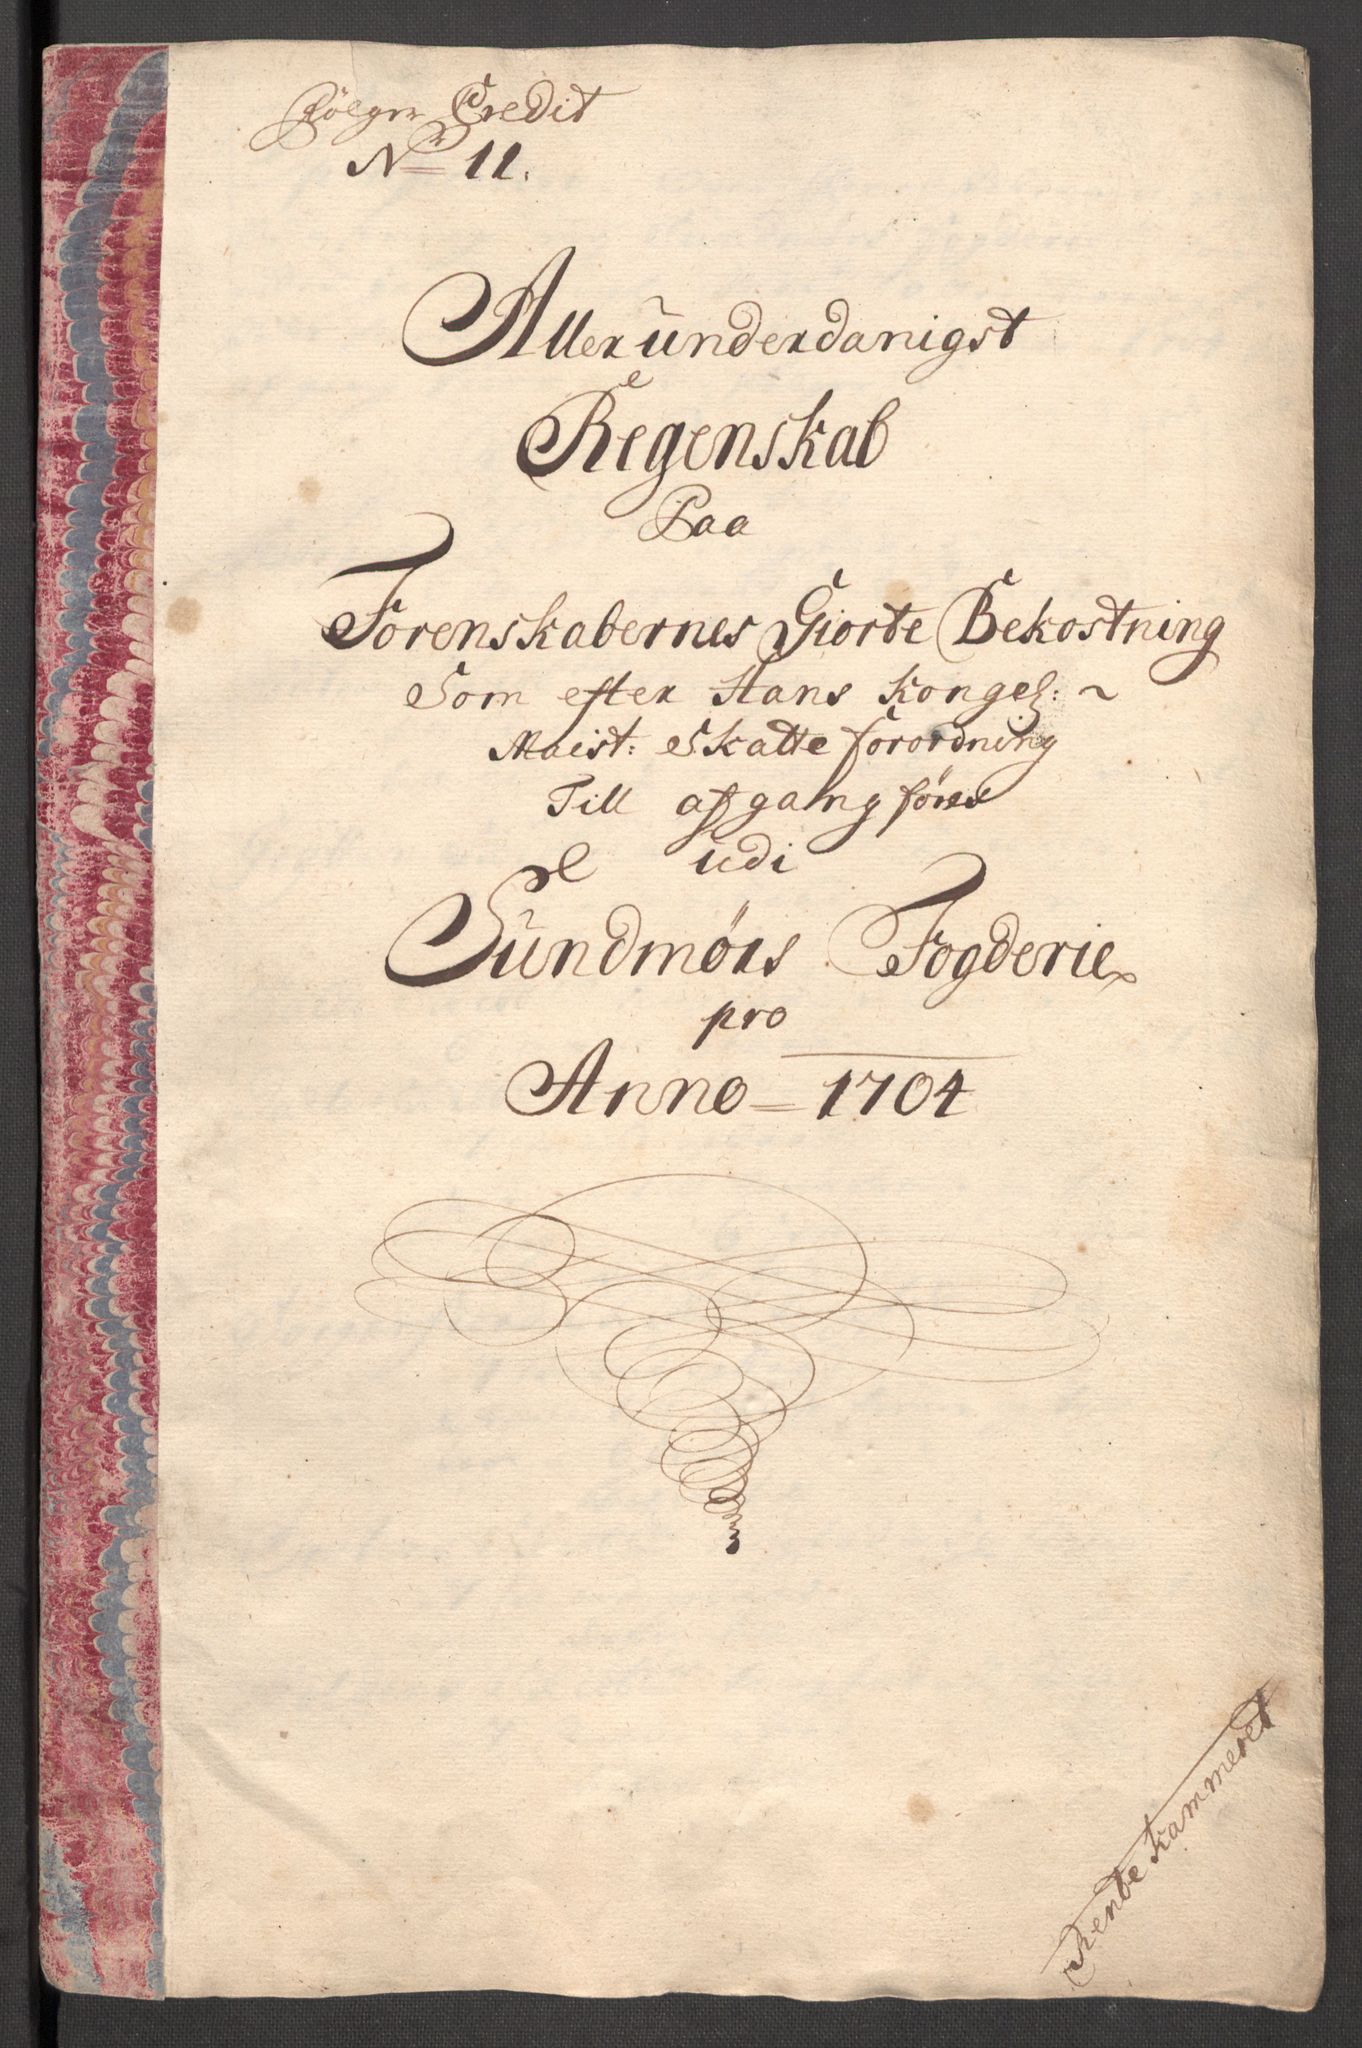 Følger Credit
No 11.
Aller underdanigst
Regenskab
Paa
Forenskabernes Giorte Bekostning
Som efter Hans Kongel: ~
Maist: Skatte forordning
Till afgang føres
udi
Sundmørs Fogderie
pro
Anno = 1704
Rente Kammeret